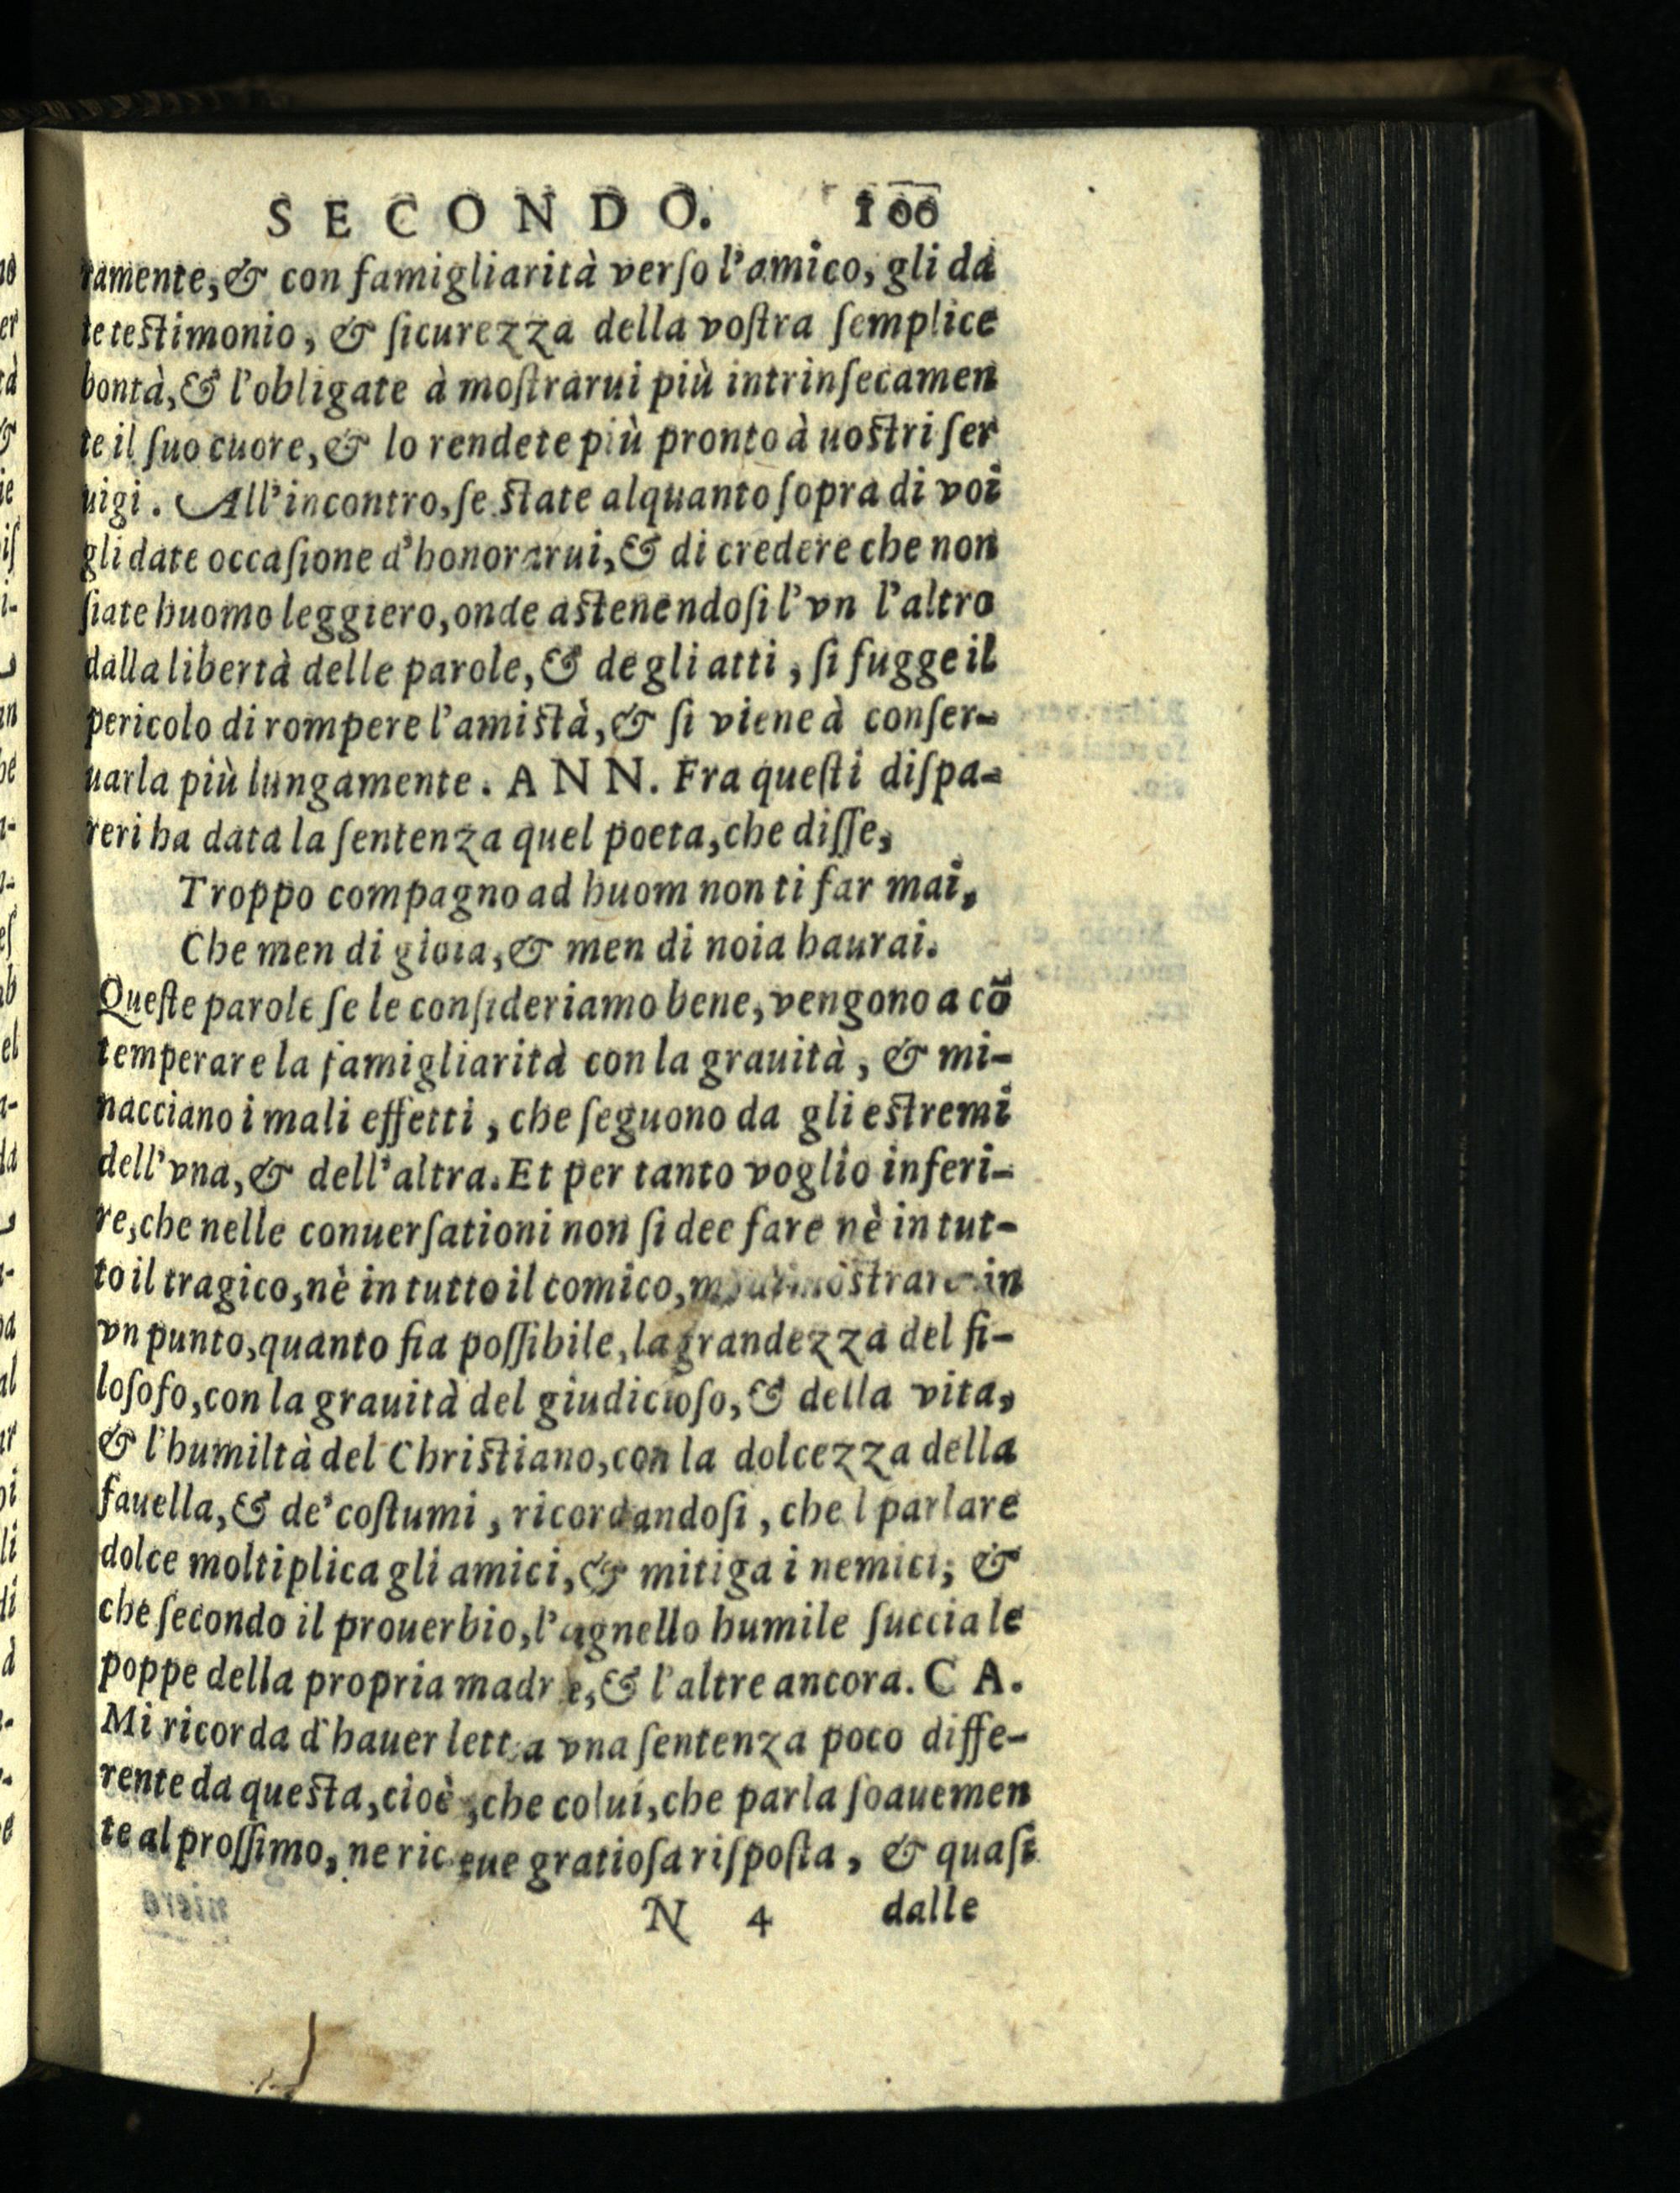 SECONDO. 100
ramente, & con famigliarità verſo l'amico, gli da
te teſtimonio, & ſicurezza della voſtra ſemplice
bontà, & l'obligate à moſtrarui più intrinſecamen
te il ſuo cuore, & lo rendete più pronto à uoſtri ſer
uigi. All'incontro, ſe ſtate alquanto ſopra di voi
gli date occaſione d'honorarui, & di credere che non
ſiate huomo leggiero, onde aſtenendoſi l'vn l'altro
dalla libertà delle parole, & de gli atti, ſi fugge il
pericolo di rompere l'amiſtà, & ſi viene à conſer-
uarla più lungamente. ANN. Fra queſti diſpa-
reri ha data la ſentenza quel poeta, che diſſe,
Troppo compagno ad huom non ti far mai,
Che men di gioia, & men di noia haurai.
Queſte parole ſe le conſideriamo bene, vengono a cõ
temperare la famigliarità con la grauità, & mi-
nacciano i mali effetti, che ſeguono da gli eſtremi
dell'vna, & dell'altra. Et per tanto voglio inferi-
re, che nelle conuerſationi non ſi dee fare nè in tut-
to il tragico, nè in tutto il comico, ma dimoſtrare in
vn punto, quanto fia poſſibile, la grandezza del fi-
loſofo, con la grauità del giudicioſo, & della vita,
& l'humiltà del Chriſtiano, con la dolcezza della
fauella, & de' coſtumi, ricordandoſi, che l parlare
dolce moltiplica gli amici, & mitiga i nemici; &
che ſecondo il prouerbio, l'agnello humile ſuccia le
poppe della propria madre, & l'altre ancora. CA.
Mi ricorda d'hauer letta vna ſentenza poco diffe-
rente da queſta, cioè, che colui, che parla ſoauemen
te al proſſimo, ne riceue gratioſa riſpoſta, & quaſi
N 4 dalle